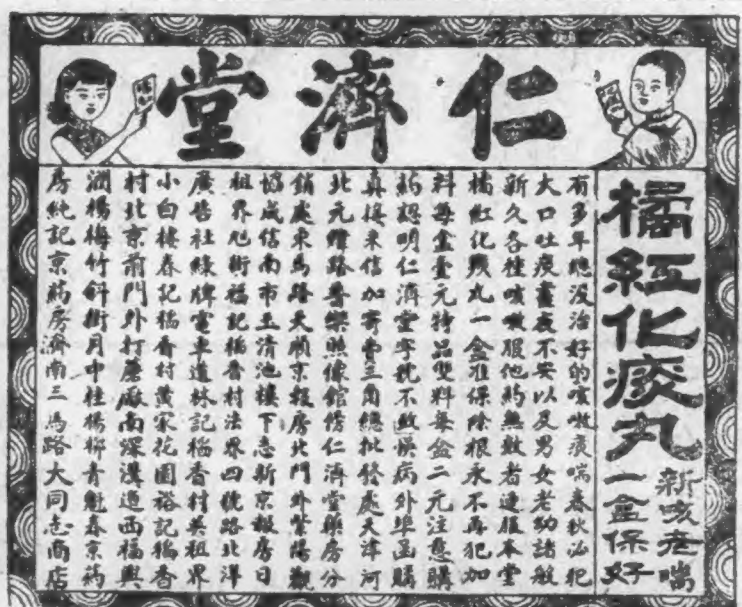 仁濟堂
橘紅化痰丸
新咳老喘
一盒保好
有多年總没治好的咳嗽痰喘春秋必犯
大口吐痰晝夜不安以及男女老幼諸般
新久各種咳嗽服他藥無效者速服本堂
橘紅化痰丸一盒准保除根永不再犯加
料每盒壹元特品雙料每盒二元注意購
藥認明仁濟堂字號不致悞病外埠函購
眞接來信加寄費三角總批發處天津河
北元緯路普樂照像館傍仁濟堂藥房分
銷處東馬路天順京報房北門外紫陽觀
協成信南市玉清池樓下志新京報房日
租界旭街福記稻香村法界四號路北洋
廣告社綠牌電車道林記稻香村英租界
小白樓春記稻香村黄家花園裕記稻香
村北京前門外打磨廠南深溝通西福興
潤楊梅竹斜街月中桂楊柳青魁春京藥
房純記京藥房濟南三馬路大同志商店